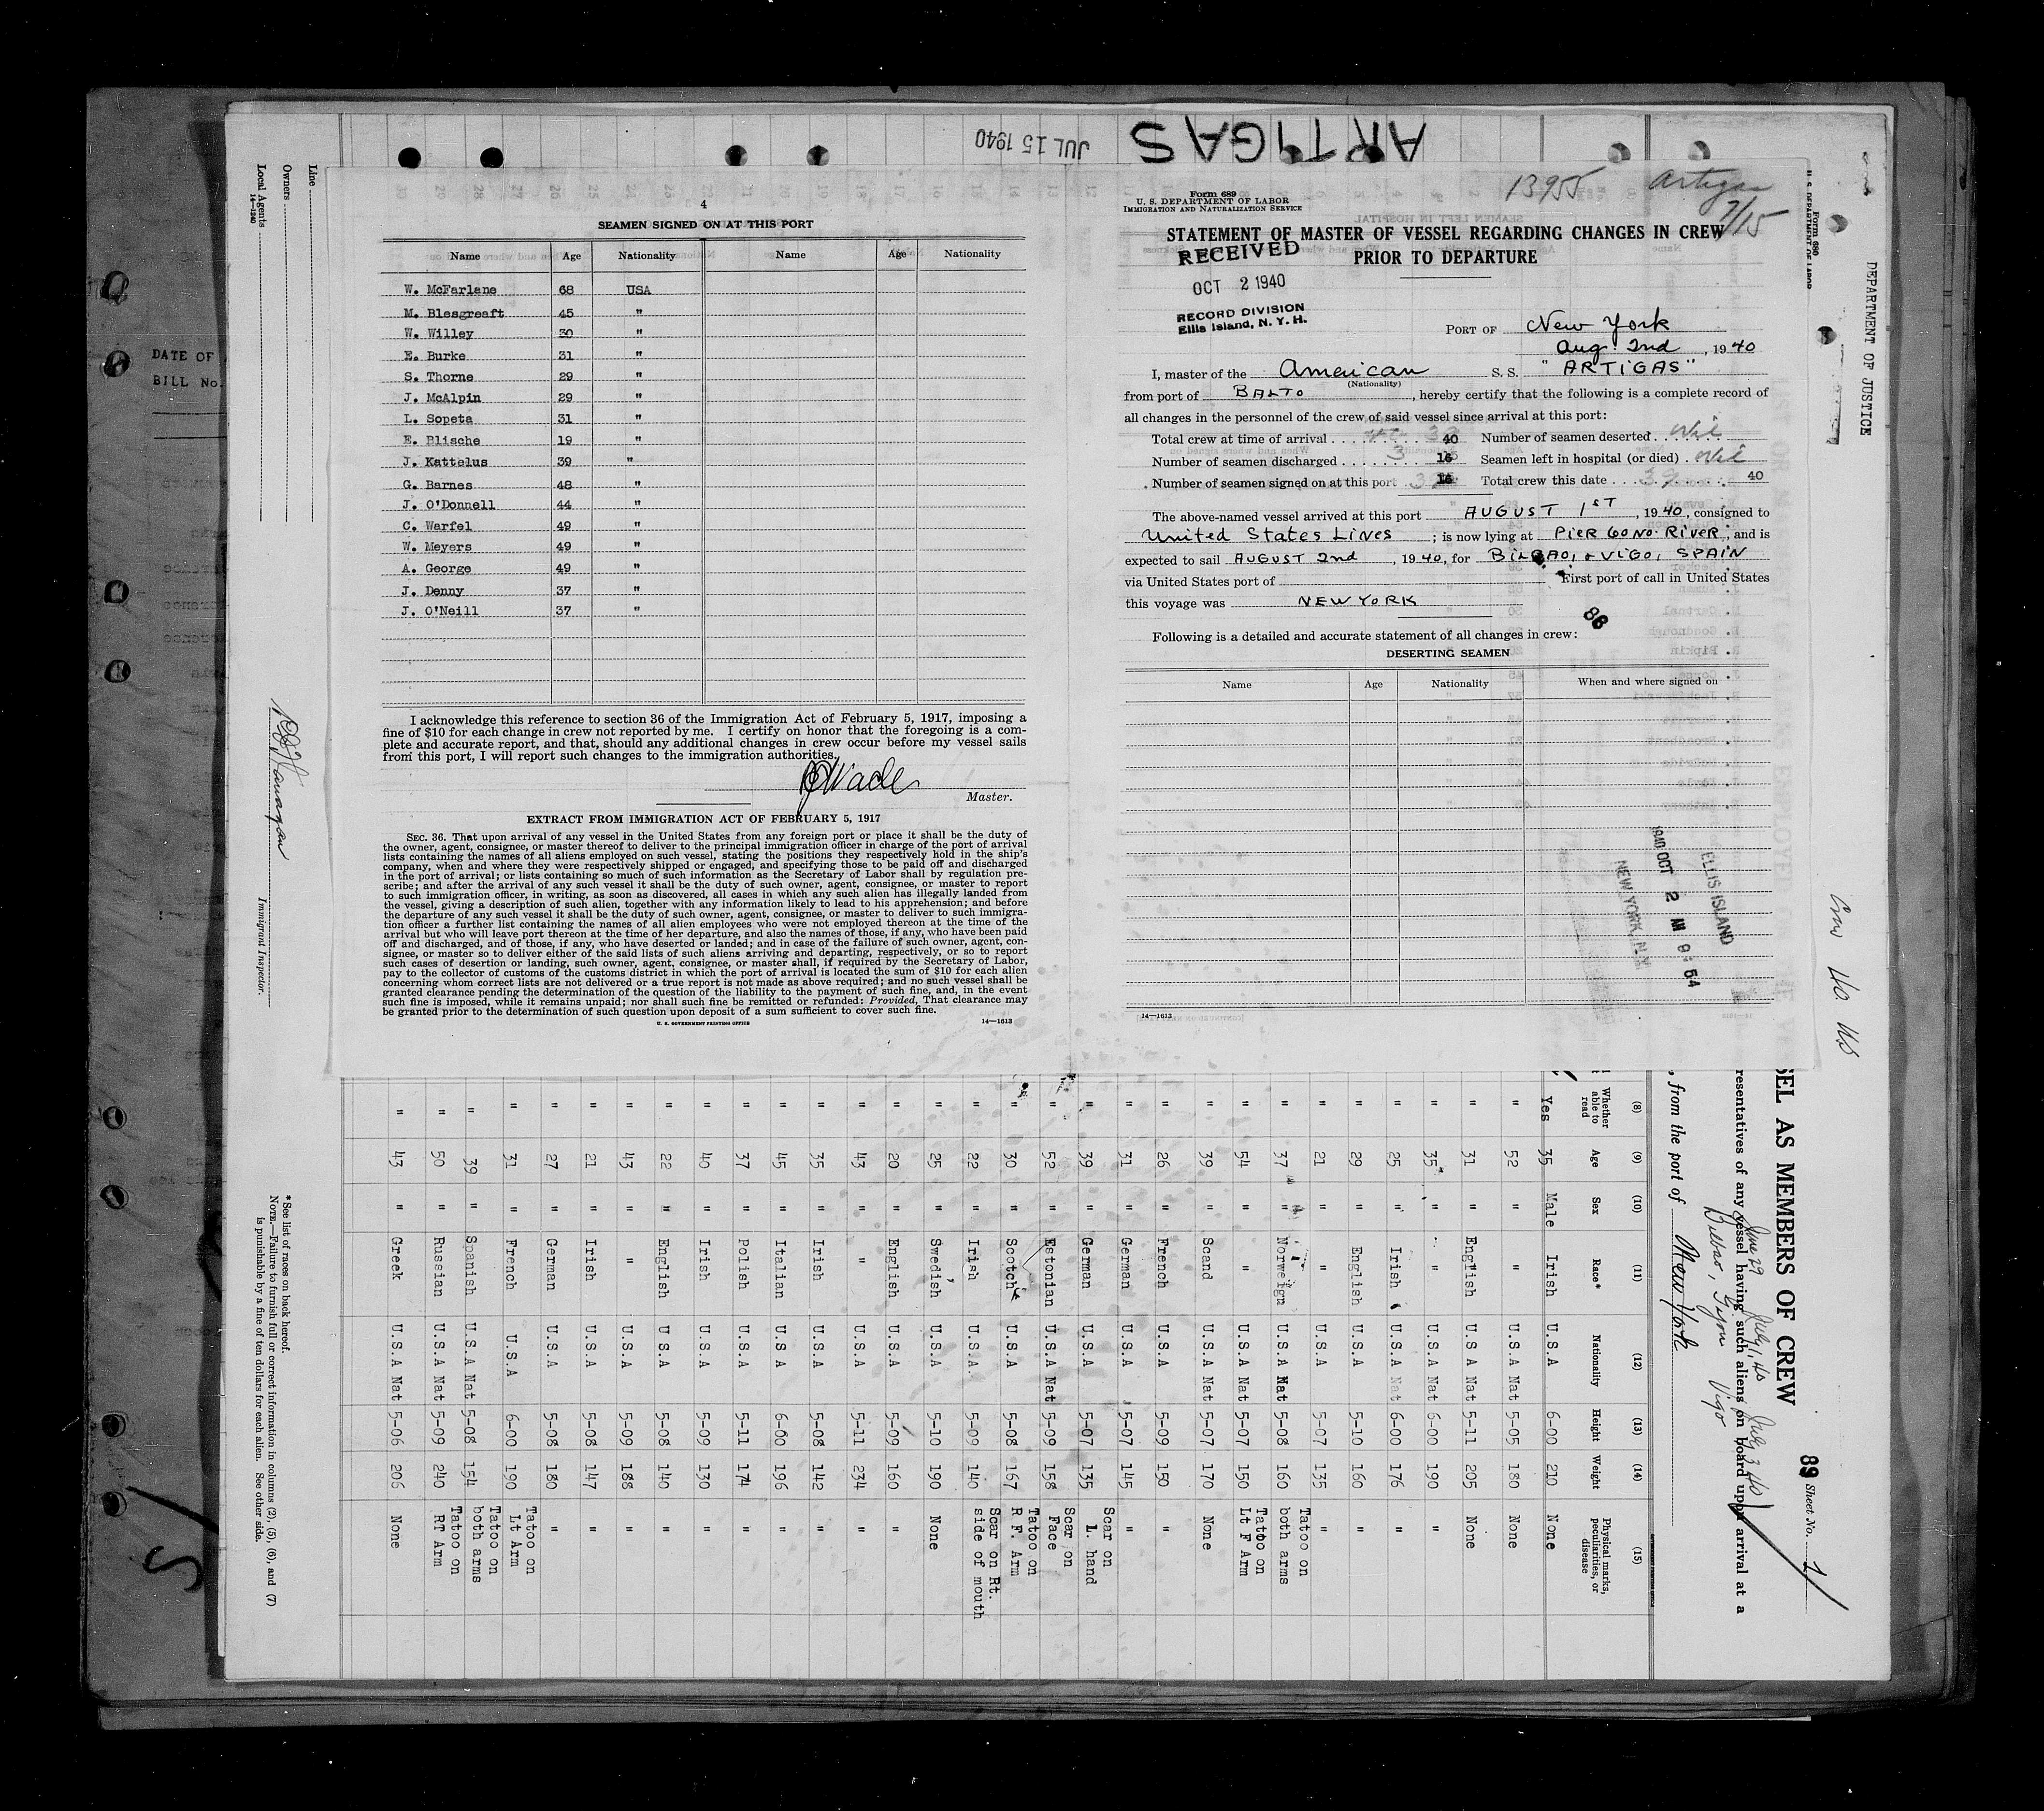 ARTIGAS
JUL 15 1940
DATE OF
BILL No.
Line
Owners
Local Agents
14—1240
Immigrant Inspector.
4
SEAMEN SIGNED ON AT THIS PORT
Name Age Nationality Name Age Nationality
W. McFarlane 68 USA
M. Blesgreaft 45 "
W. Willey 30 "
E. Burke 31 "
S. Thorne 29 "
J. McAlpin 29 "
L. Sopeta 31 "
E. Blische 19 "
J. Kattelus 39 "
G. Barnes 48 "
J. O'Donnell 44 "
C. Warfel 49 "
W. Meyers 49 "
A. George 49 "
J. Denny 37 "
J. O'Neill 37 "
I acknowledge this reference to section 36 of the Immigration Act of February 5, 1917, imposing a
fine of $10 for each change in crew not reported by me. I certify on honor that the foregoing is a com-
plete and accurate report, and that, should any additional changes in crew occur before my vessel sails
from this port, I will report such changes to the immigration authorities.
Wade
Master.
EXTRACT FROM IMMIGRATION ACT OF FEBRUARY 5, 1917
SEC. 36. That upon arrival of any vessel in the United States from any foreign port or place it shall be the duty of
the owner, agent, consignee, or master thereof to deliver to the principal immigration officer in charge of the port of arrival
lists containing the names of all aliens employed on such vessel, stating the positions they respectively hold in the ship's
company, when and where they were respectively shipped or engaged, and specifying those to be paid off and discharged
in the port of arrival; or lists containing so much of such information as the Secretary of Labor shall by regulation pre-
scribe; and after the arrival of any such vessel it shall be the duty of such owner, agent, consignee, or master to report
to such immigration officer, in writing, as soon as discovered, all cases in which any such alien has illegally landed from
the vessel, giving a description of such alien, together with any information likely to lead to his apprehension; and before
the departure of any such vessel it shall be the duty of such owner, agent, consignee, or master to deliver to such immigra-
tion officer a further list containing the names of all alien employees who were not employed thereon at the time of the
arrival but who will leave port thereon at the time of her departure, and also the names of those, if any, who have been paid
off and discharged, and of those, if any, who have deserted or landed; and in case of the failure of such owner, agent, con-
signee, or master so to deliver either of the said lists of such aliens arriving and departing, respectively, or so to report
such cases of desertion or landing, such owner, agent, consignee, or master shall, if required by the Secretary of Labor,
pay to the collector of customs of the customs district in which the port of arrival is located the sum of $10 for each alien
concerning whom correct lists are not delivered or a true report is not made as above required; and no such vessel shall be
granted clearance pending the determination of the question of the liability to the payment of such fine, and, in the event
such fine is imposed, while it remains unpaid; nor shall such fine be remitted or refunded: Provided, That clearance may
be granted prior to the determination of such question upon deposit of a sum sufficient to cover such fine.
U. S. GOVERNMENT PRINTING OFFICE 14—1613
13955 Artigas
7/15
Form 689
U. S. DEPARTMENT OF LABOR
IMMIGRATION AND NATURALIZATION SERVICE
STATEMENT OF MASTER OF VESSEL REGARDING CHANGES IN CREW
PRIOR TO DEPARTURE
RECEIVED
OCT 2 1940
RECORD DIVISION
Ellis Island, N. Y. H.
PORT OF New York
Aug. 2nd, 1940
I, master of the American S. S. "ARTIGAS"
(Nationality)
from port of BALTO, hereby certify that the following is a complete record of
all changes in the personnel of the crew of said vessel since arrival at this port:
Total crew at time of arrival 40 Number of seamen deserted Nil
Number of seamen discharged 16 Seamen left in hospital (or died) Nil
Number of seamen signed on at this port 16 Total crew this date 39 40
The above-named vessel arrived at this port AUGUST 1ST, 1940, consigned to
United States Lines; is now lying at PIER 60 NO. RIVER, and is
expected to sail AUGUST 2nd, 1940, for BILBAO, & VIGO, SPAIN
via United States port of First port of call in United States
this voyage was NEW YORK
86
Following is a detailed and accurate statement of all changes in crew:
DESERTING SEAMEN
Name Age Nationality When and where signed on
ELLIS ISLAND
1940 OCT 2 AM 9:54
NEW YORK, N.Y.
14—1613
Form 680
U. S. DEPARTMENT OF LABOR
DEPARTMENT OF JUSTICE
Crew 40 US
89 Sheet No. 1
SEL AS MEMBERS OF CREW
resentatives of any vessel having such aliens on board upon arrival at a
June 29 July 1, 40 July 3 40
Bilbao, Gijon Vigo
, from the port of New York
(8) (9) (10) (11) (12) (13) (14) (15)
Whether able to read Age Sex Race* Nationality Height Weight Physical marks, peculiarities, or disease
Yes 35 Male Irish U.S.A 6-00 210 None
" 52 " " U.S.A Nat 5-05 180 None
" 31 " English U.S A Nat 5-11 205 None
" 35 " " U.S.A Nat 6-00 190 "
" 25 " Irish U.S.A Nat 6-00 176 "
" 29 " English U.S.A 5-10 160 "
" 21 " " U.S.A 5-07 135 "
" 37 " Norweign U.S.A Nat 5-08 160 Tatoo on both arms
" 54 " " U.S.A Nat 5-07 150 Tatto on Lt F Arm
" 39 " Scand U.S.A Nat 5-07 170 None
" 26 " French U.S.A 5-09 150 "
" 31 " German U.S.A 5-07 145 "
" 39 " German U.S.A 5-07 135 Scar on L. hand
" 52 " Estonian U.S.A Nat 5-09 158 Scar on Face
" 30 " Scotch U.S.A 5-08 167 Tatoo on R F. Arm
" 22 " Irish U.S.A. 5-09 140 Scar on Rt. side of mouth
" 25 " Swedish U.S.A 5-10 190 None
" 20 " English U.S.A 5-09 160 "
" 43 " " U.S.A 5-11 234 "
" 35 " Irish U.S.A 5-08 142 "
" 45 " Italian U.S A 6-00 196 "
" 37 " Polish U.S.A 5-11 174 "
" 40 " Irish U.S.A 5-09 130 "
" 22 " English U.S.A 5-08 140 "
" 43 " " U.S.A 5-09 188 "
" 21 " Irish U.S.A 5-08 147 "
" 27 " German U.S.A 5-08 180 "
" 31 " French U.S.A 6-00 190 Tatoo on Lt Arm
" 39 " Spanish U.S.A Nat 5-08 154 Tatoo on both arms
" 50 " Russian U.S.A Nat 5-09 240 Tatoo on RT Arm
" 43 " Greek U.S.A Nat 5-06 206 None
*See list of races on back hereof.
NOTE.—Failure to furnish full or correct information in columns (2), (5), (6), and (7)
is punishable by a fine of ten dollars for each alien. See other side.